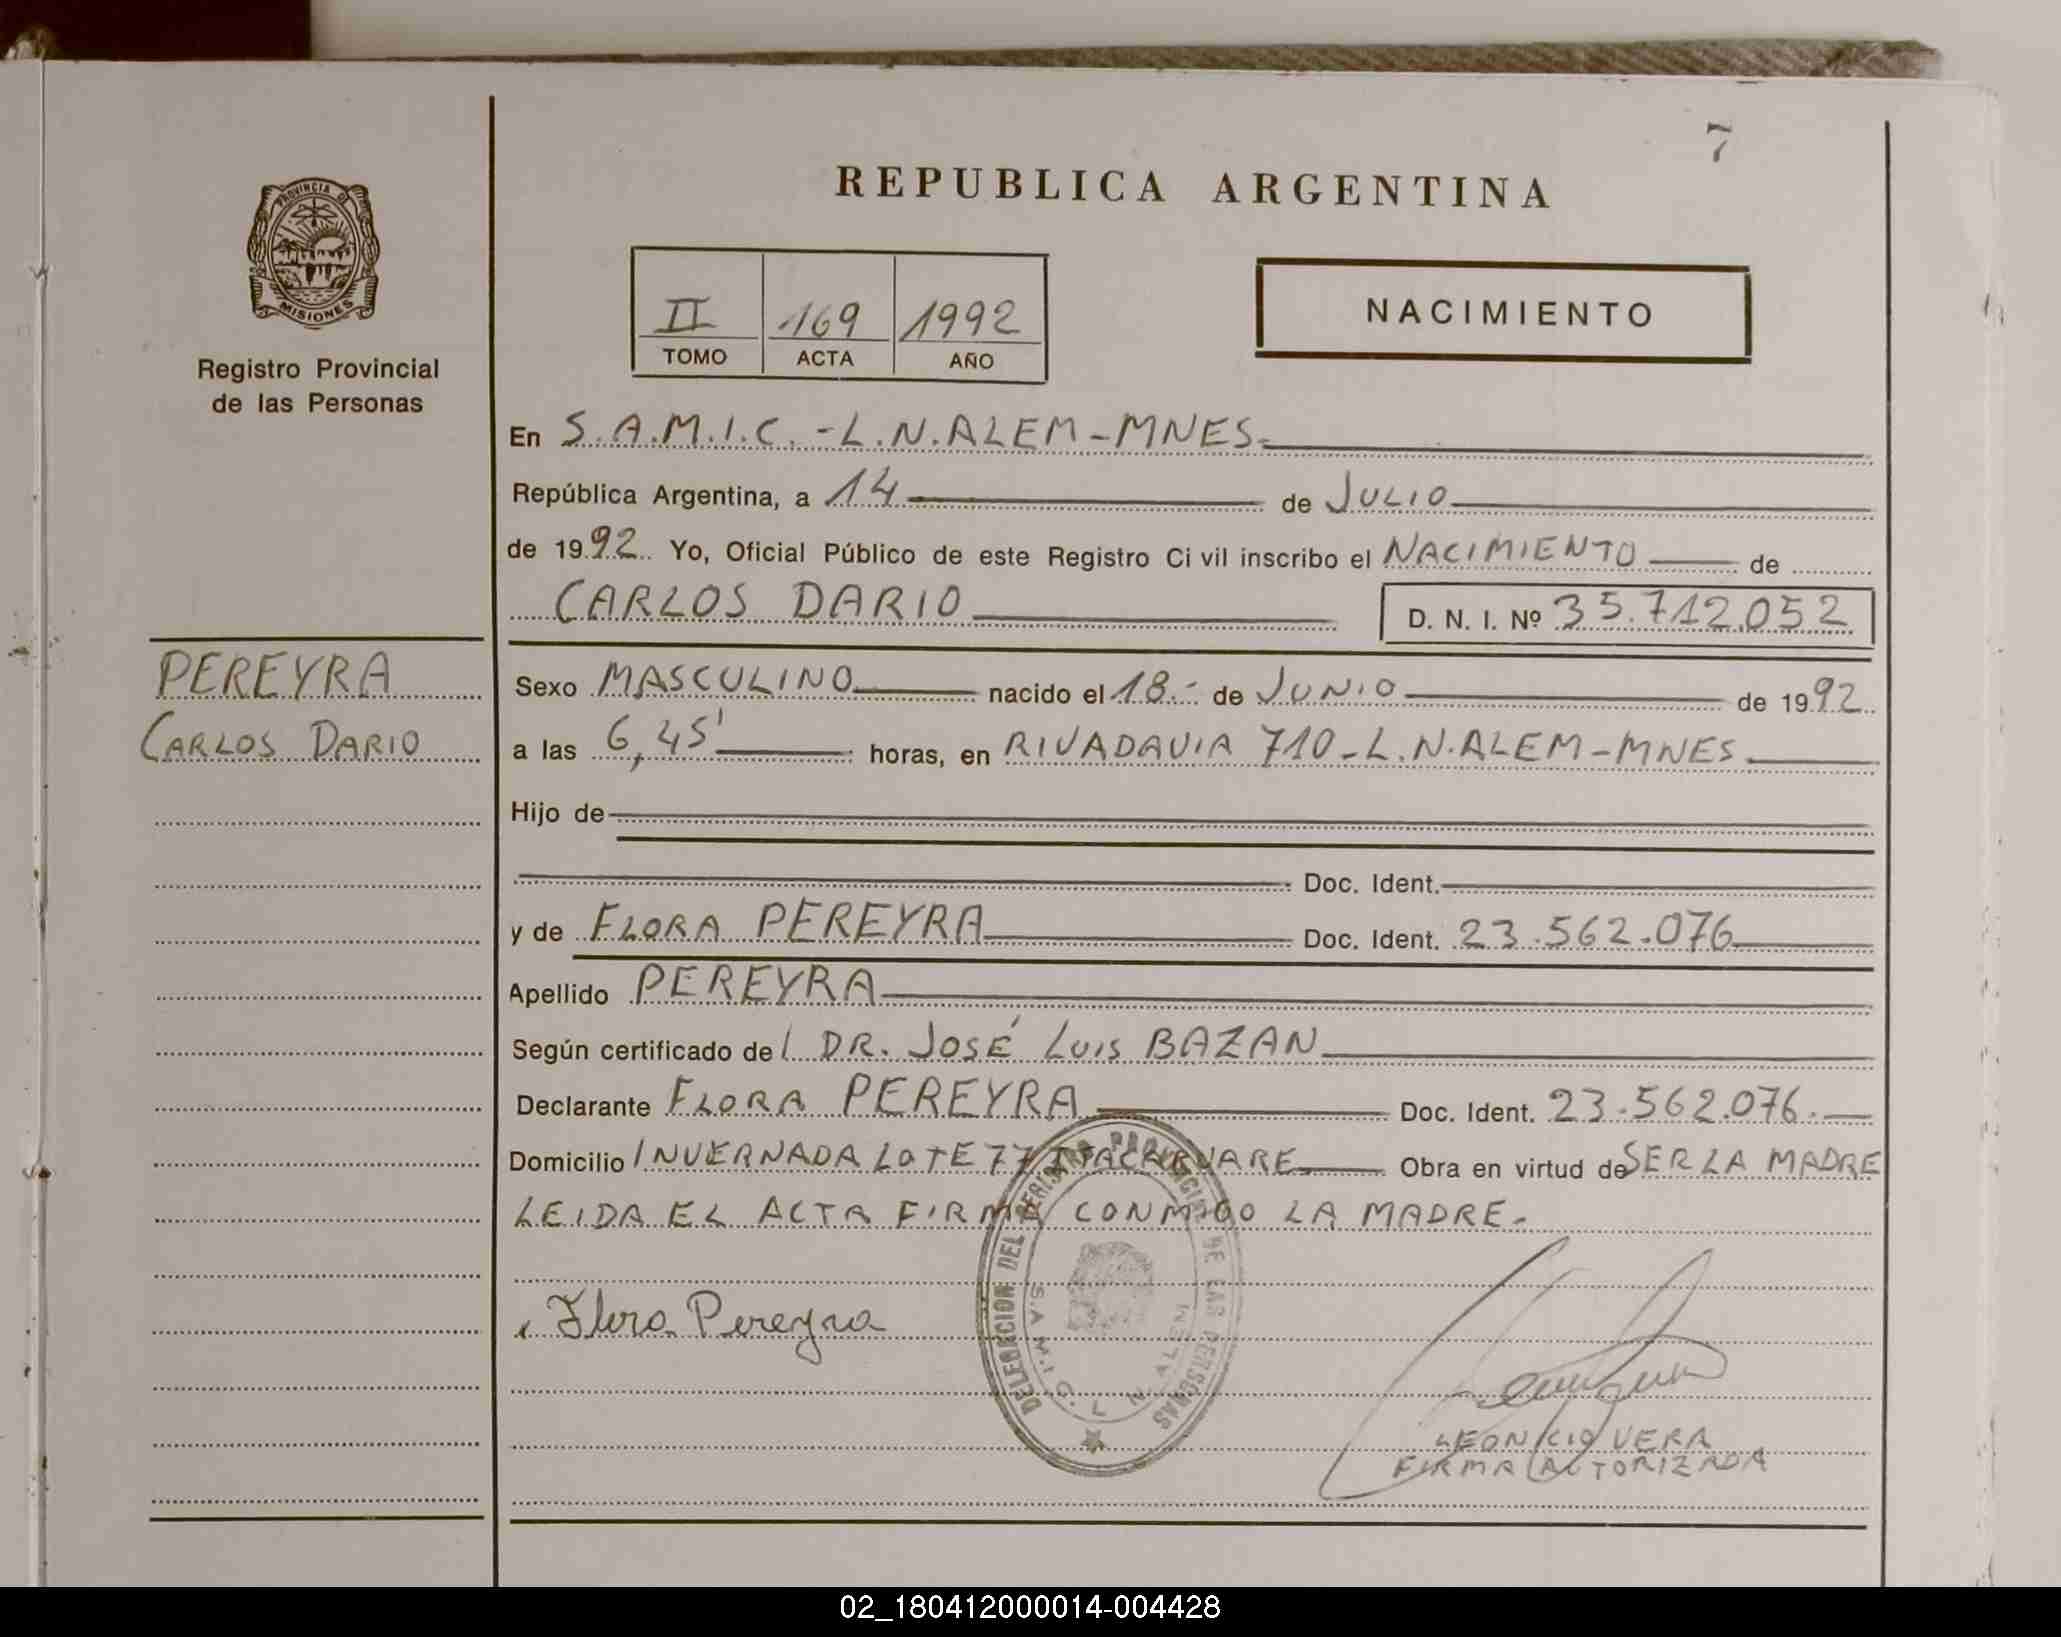 7
REPUBLICA ARGENTINA
PROVINCIA DE
MISIONES
Registro Provincial
de las Personas
II 169 1992
TOMO ACTA AÑO
NACIMIENTO
En S.A.M.I.C. - L.N.ALEM-MNES.
República Argentina, a 14 de JULIO
de 1992. Yo, Oficial Público de este Registro Ci vil inscribo el NACIMIENTO de
CARLOS DARIO
D. N. I. Nº 35.712.052
PEREYRA
CARLOS DARIO
Sexo MASCULINO nacido el 18.- de JUNIO de 1992.
a las 6,45' horas, en RIVADAVIA 710-L.N.ALEM-MNES
Hijo de
Doc. Ident.
y de FLORA PEREYRA Doc. Ident. 23.562.076
Apellido PEREYRA
Según certificado del DR. JOSÉ LUIS BAZAN
Declarante FLORA PEREYRA Doc. Ident. 23.562.076.
Domicilio INVERNADA LOTE 77 ITACARUARE Obra en virtud de SER LA MADRE
LEIDA EL ACTA FIRMA CONMIGO LA MADRE.
Flora Pereyra
DELEGACION DEL REGISTRO PROVINCIAL DE LAS PERSONAS
S.A.M.I.C. L. N. ALEM
LEONCIO VERA
FIRMA AUTORIZADA
02_180412000014-004428